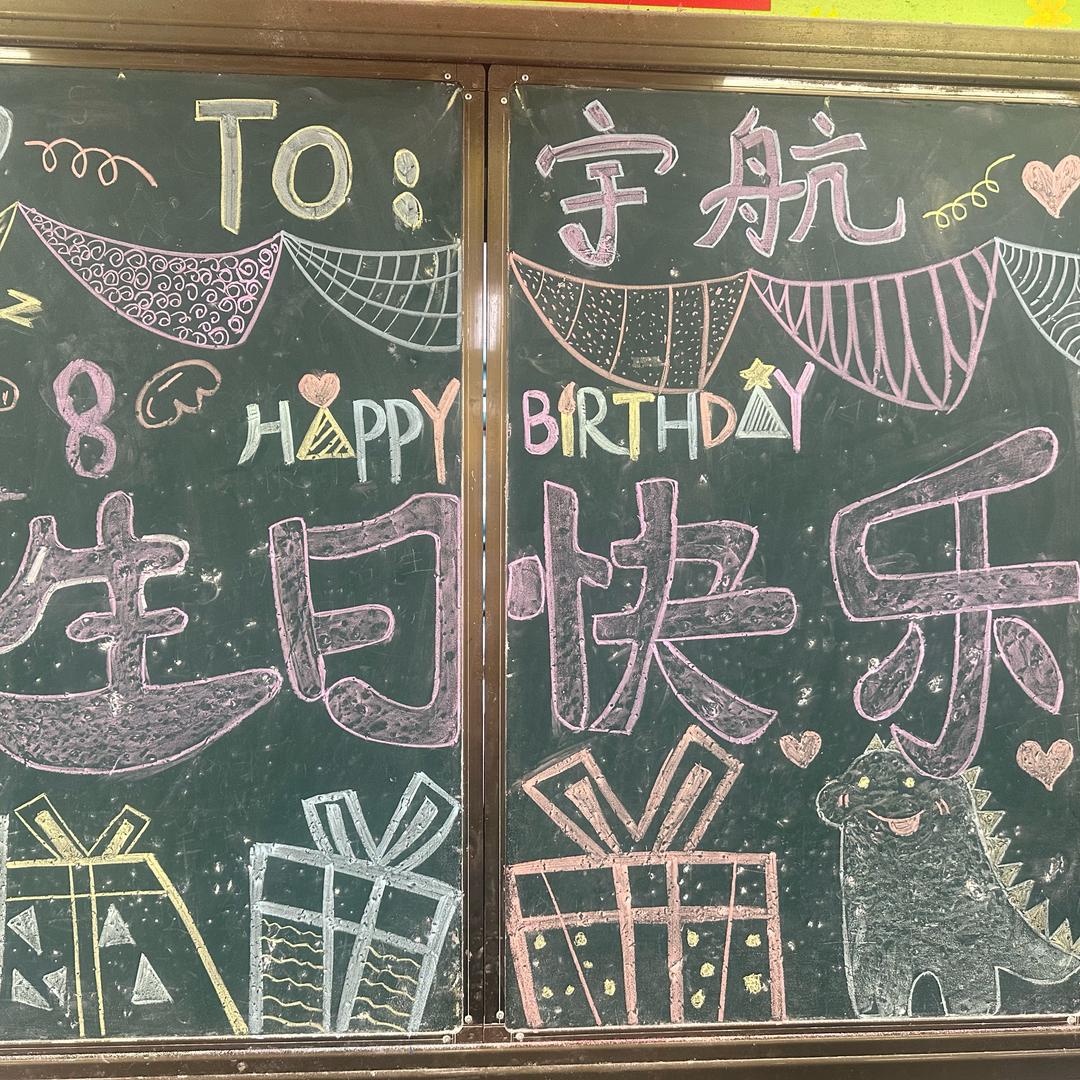 TO: 宇航
8
HAPPY BIRTHDAY
生日快乐